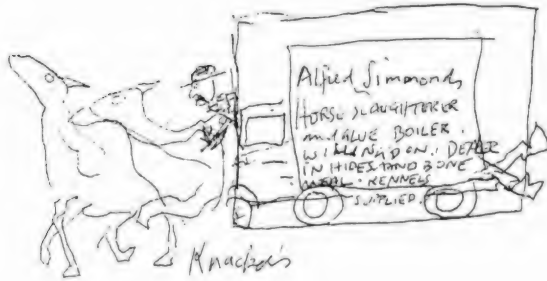 Alfred Simmonds
HORSE SLAUGHTERER
AND GLUE BOILER.
WILLINGDON. DEALER
IN HIDES AND BONE
MEAL. KENNELS
SUPLIED.
Knackers